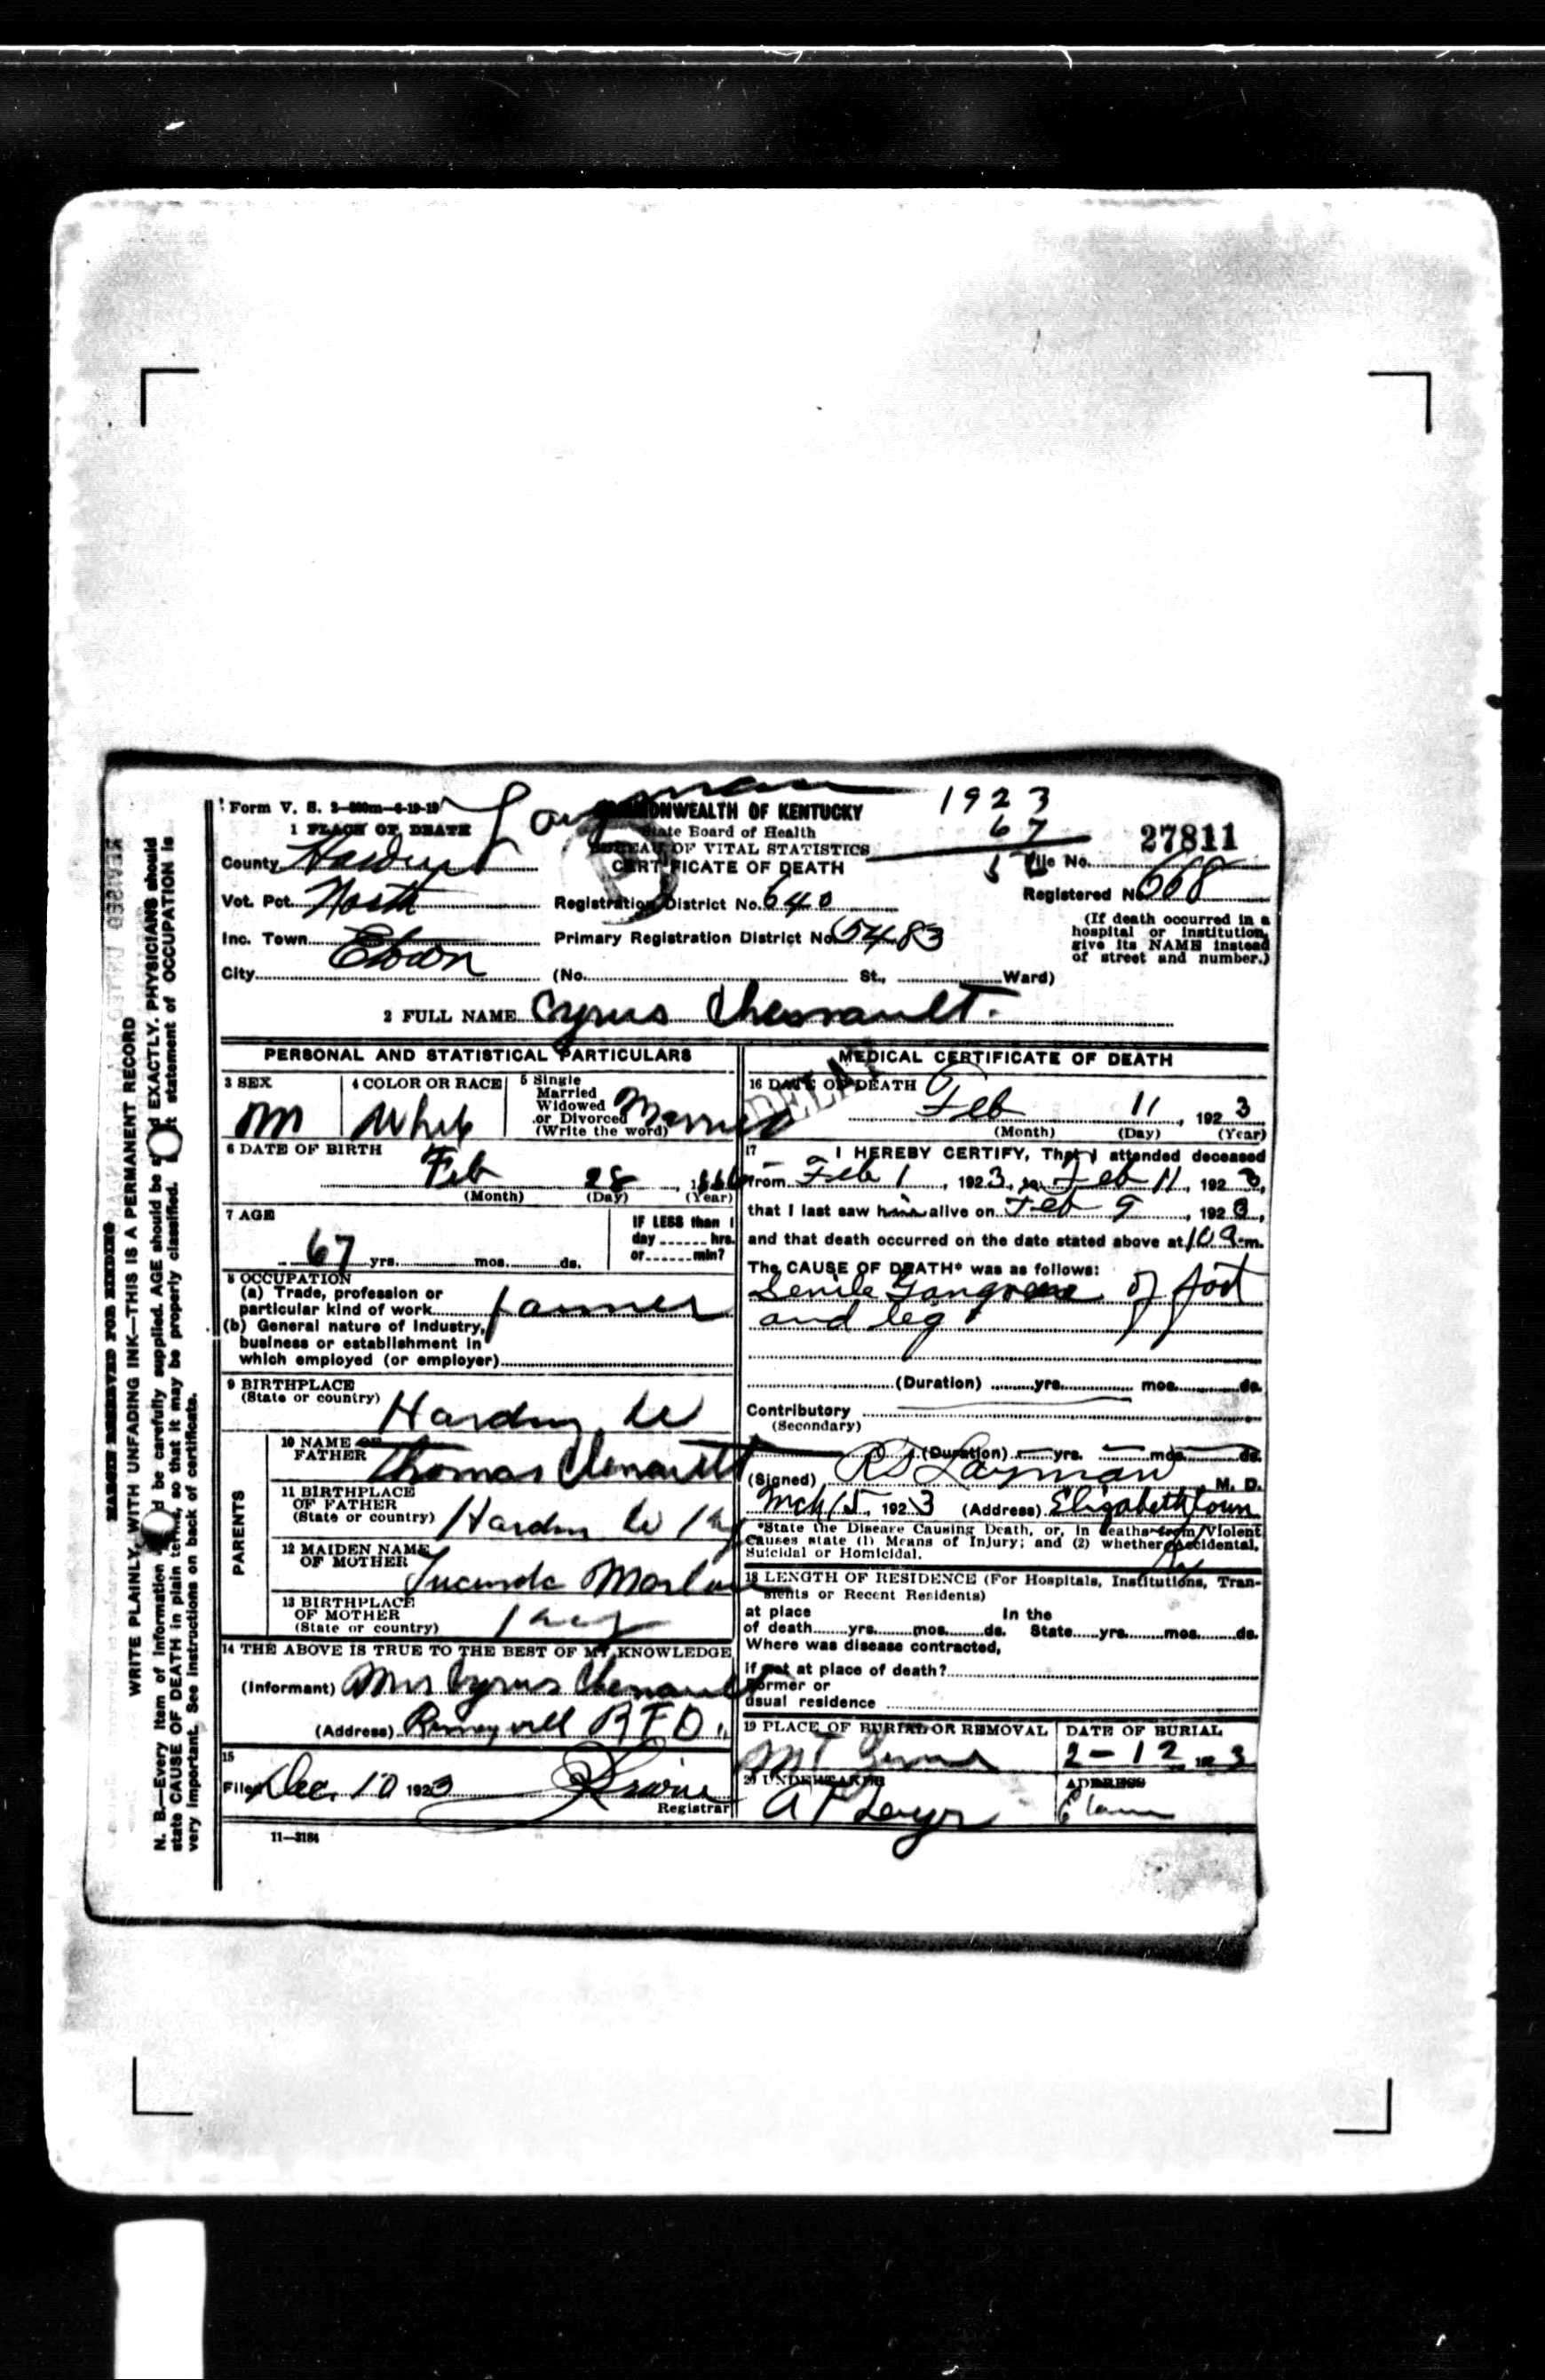 Form V. S.
Layman
1 PLACE OF DEATH
COMMONWEALTH OF KENTUCKY
State Board of Health
BUREAU OF VITAL STATISTICS
CERTIFICATE OF DEATH
1923
67
27811
File No.
County Hardin
Registered No. 668
Vot. Pct. North
Registration District No. 640
(If death occurred in a
hospital or institution,
give its NAME instead
of street and number.)
Inc. Town Etown
Primary Registration District No. 5483
City
(No. St., Ward)
2 FULL NAME Cyrus Chenault.
PERSONAL AND STATISTICAL PARTICULARS
3 SEX
M
4 COLOR OR RACE
White
5 Single
Married
Widowed
or Divorced
(Write the word)
Married
6 DATE OF BIRTH
Feb 28
(Month) (Day) (Year)
7 AGE
67 yrs. mos. ds.
IF LESS than 1
day hrs.
or min?
8 OCCUPATION
(a) Trade, profession or
particular kind of work farmer
(b) General nature of industry,
business or establishment in
which employed (or employer)
9 BIRTHPLACE
(State or country)
Hardin Co
PARENTS
10 NAME OF
FATHER
Thomas Chenault
11 BIRTHPLACE
OF FATHER
(State or country)
Hardin Co Ky
12 MAIDEN NAME
OF MOTHER
13 BIRTHPLACE
OF MOTHER
(State or country)
Ky
14 THE ABOVE IS TRUE TO THE BEST OF MY KNOWLEDGE
(Informant) Mrs Cyrus Chenault
(Address) R F D
15
Filed Dec. 10 1923
Registrar
11—3184
MEDICAL CERTIFICATE OF DEATH
DELAY
16 DATE OF DEATH
Feb 11, 1923
(Month) (Day) (Year)
17
I HEREBY CERTIFY, That I attended deceased
from Feb 1, 1923, to Feb 11, 1923,
that I last saw him alive on Feb 9, 1923,
and that death occurred on the date stated above at 10 a.m.
The CAUSE OF DEATH* was as follows:
Senile Gangrene of foot
and leg
(Duration) yrs. mos. ds.
Contributory
(Secondary)
(Duration) yrs. mos. ds.
(Signed) R S Layman M. D.
Mch 15, 1923 (Address) Elizabethtown
Ky
*State the Disease Causing Death, or, in deaths from Violent
Causes state (1) Means of Injury; and (2) whether Accidental,
Suicidal or Homicidal.
18 LENGTH OF RESIDENCE (For Hospitals, Institutions, Tran-
sients or Recent Residents)
at place In the
of death yrs. mos. ds. State yrs. mos. ds.
Where was disease contracted,
if not at place of death?
Former or
usual residence
19 PLACE OF BURIAL OR REMOVAL
DATE OF BURIAL
2-12 1923
20 UNDERTAKER
ADDRESS
MARGIN RESERVED FOR BINDING
WRITE PLAINLY, WITH UNFADING INK—THIS IS A PERMANENT RECORD
N. B.—Every item of information should be carefully supplied. AGE should be stated EXACTLY. PHYSICIANS should
state CAUSE OF DEATH in plain terms, so that it may be properly classified. Exact statement of OCCUPATION is
very important. See instructions on back of certificate.